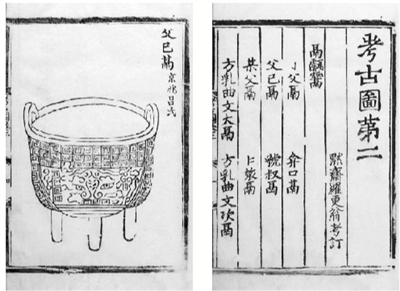 考古圖第二
黙齋羅更翁考訂
鬲甗鬵
丁父鬲 弇口鬲
父己鬲 虢叔鬲
某父鬲 鬲
方乳曲文大鬲 方乳曲文次鬲
父己鬲 京兆呂氏